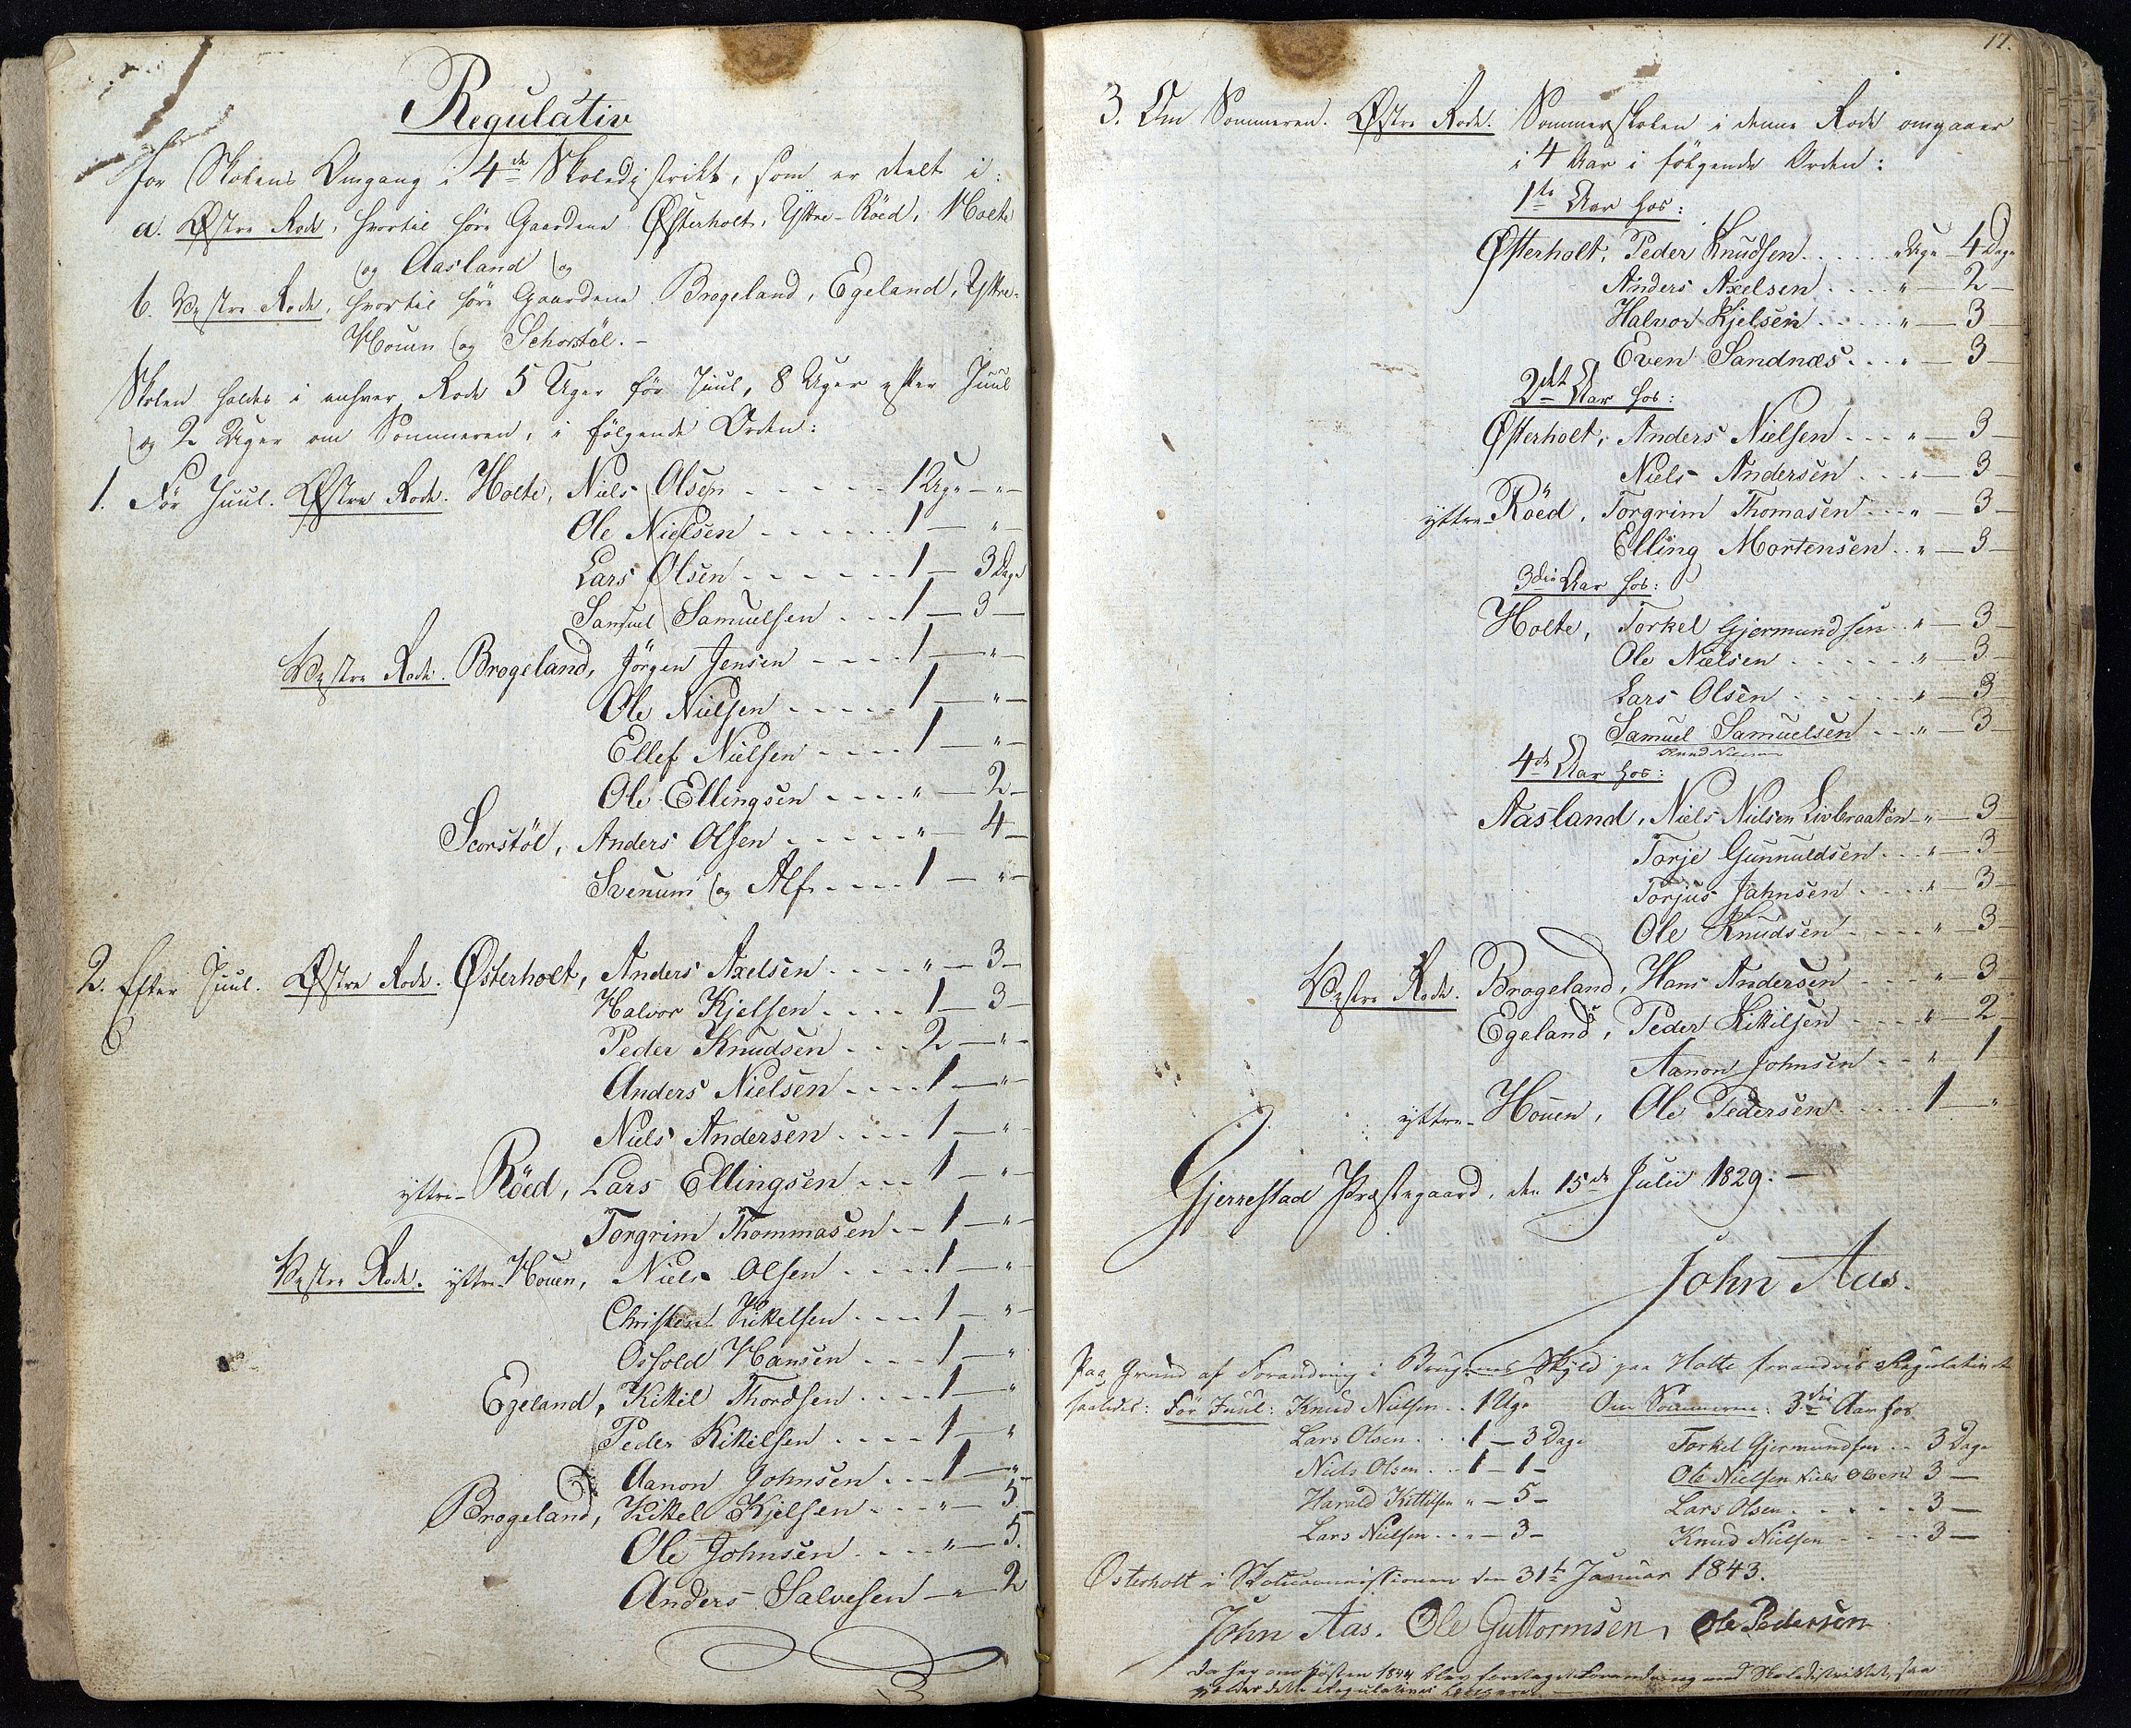 Regulativ
for Skolens Omgang i 4de Skoledistrikt, som er deelt i:
a. Østre Rode, hvortil høre Gaardene Østerholt, Yttre-Röed, Holte
og Aasland og
b. Vestre Rode, hvortil høre Gaardene Brogeland, Egeland, Yttre-
Houen og Schorstöl. -
Skolen holdes i enhver Rode 5 Uger før Juul, 8 Uger efter Juul
og 2 Uger om Sommeren, i følgende Orden:
1. Før Juul. Østre Rode. Holte, Niels Olsen - - - - - 1 Uge - " -
Ole Nielsen - - - - - - 1 — " -
Lars Olsen - - - - - - 1 — 3 Dage
Samuel Samuelsen - - - 1 — 3 —
Vestre Rode. Brogeland, Jörgen Jensen - - - - 1 — " -
Ole Nielsen - - - - - 1 — " -
Ellef Nielsen - - - - 1 — " -
Ole Ellingsen - - - - " — 2 -
Scorstöl, Anders Olsen - - - - - " — 4 -
Svenum og Alf - - - - 1 — " -
2. Efter Juul. Østre Rode. Østerholt, Anders Axelsen - - - - " — 3 -
Halvor Kjelsen - - - - 1 — 3 -
Peder Knudsen - - - 2 — " -
Anders Nielsen - - - - 1 — " -
Niels Andersen - - - - 1 — " -
yttre-Röed, Lars Ellingsen - - - 1 — " -
Torgrim Thommasen - - 1 — " -
Vestre Rode. yttre-Houen, Niels Olsen - - - - 1 — "
Christen Kittelsen - - - - 1 — " -
Osfold Hansen - - - 1 — "
Egeland, Kittil Thordsen - - - - 1 — "
Peder Kittilsen - - - - 1 — "
Aanon Johnsen - - - 1 — "
Brogeland, Kittel Kjelsen - - - " — 5
Ole Johnsen - - - - " — 5.
Anders Salvesen — " 2
17.
3. Om Sommeren. Østre Rode. Sommerskolen i denne Rode omgaaer
i 4 Aar i følgende Orden:
1te Aar hos:
Østerholt, Peder Knudsen - - - - - " Uge - 4 Dage
Anders Axelsen - - - - " — 2 —
Halvor Kjelsen - - - - - " — 3 —
Even Sandnæs - - - " — 3 —
2det Aar hos:
Østerholt, Anders Nielsen - - - " — 3 —
Niels Andersen - - - " — 3 —
yttre-Röed, Torgrim Thomasen - - - " — 3 —
Elling Mortensen - - " — 3 —
3die Aar hos:
Holte, Torkel Gjermundsen - - " — 3 —
Ole Nielsen - - - - - - " — 3 —
Lars Olsen - - - - - - " — 3
Samuel Samuelsen - - - " — 3 —
Knud Nielsen
4de Aar hos:
Aasland, Niels Nielsen Livbraaten - " — 3
Torje Gunnuldsen - - - " — 3
Torjus Jahnsen - - - - " — 3 —
Ole Knudsen - - - - " — 3 —
Vestre Rode. Brogeland, Hans Andersen - - - " — 3 —
Egeland, Peder Kittilsen - - - " — 2 —
Aanon Johnsen - - - " — 1
yttre-Houen, Ole Pedersen - - - - 1 — "
Gjerrestad Præstegaard, den 15de Julii 1829. —
John Aas.
Paa Grund af Forandring i Brugenes Skyld paa Holte forandres Regulativet
saaledes: Før Juul: Knud Nielsen - - 1 Uge Om Sommeren: 3die Aar hos
Lars Olsen - - - 1 — 3 Dage Torkel Gjermundsen - - 3 Dage
Niels Olsen - - 1 - 1 - Ole Nielsen Niels Olsen 3 —
Harald Kittilsen " - 5 - Lars Olsen - - - - - 3 —
Lars Nielsen - - " - 3 - Knud Nielsen - - - 3 —
Østerholt i Skolecommissionen den 31te Januar 1843.
John Aas. Ole Guttormsen, Ole Pedersen
Da her om Høsten 1844 blev foretaget Forandring med Skoledistriktet, saa
gjelder dette Regulativ længere